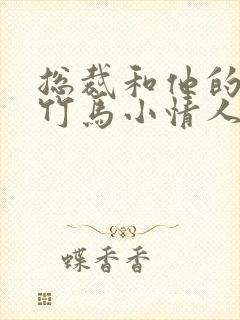 总裁和他的
竹马小情人
蝶香香